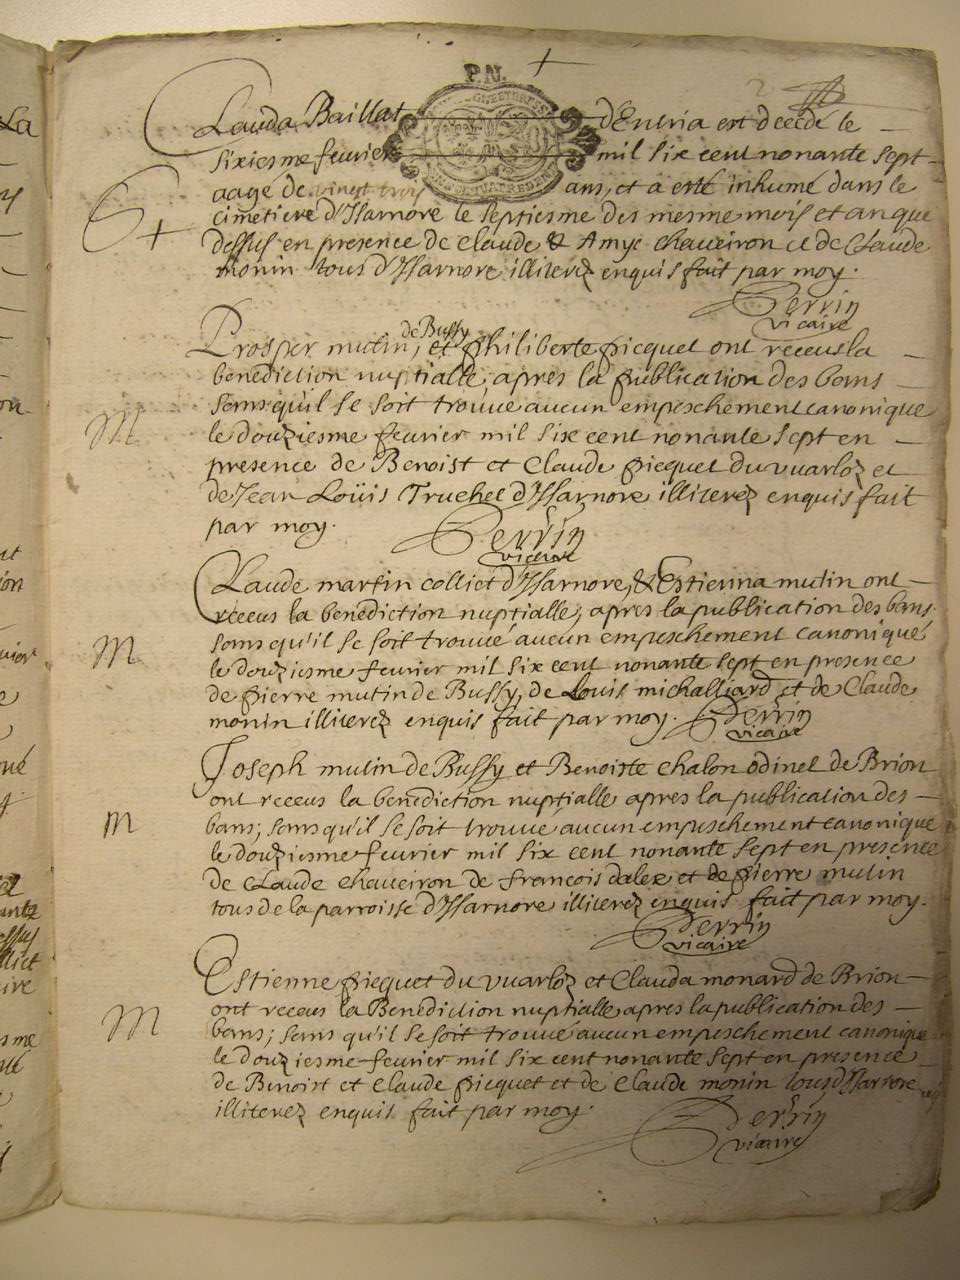 P.N.
Clauda Baillat d'Entria est decedé le
sixiesme fevrier mil six cent nonante sept
aagé de vingt trois ans, et a esté inhumé dans le
cimetiere d'Isarnore le septiesme des mesme mois et an que
dessus en presence de Claude & Amye chaveiron et de Claude
monin tous d'Isarnore illiterez enquis fait par moy.
Perrin
vicaire
Prosper mutin, de Bussy et philiberte picquet ont receus la
benediction nuptialle, apres la publication des bans
sans qu'il se soit trouvé aucun empeschement canonique
M
le douziesme fevrier mil six cent nonante sept en
presence de Benoist et Claude picquet du vuarloz et
de Jean Loüis Truchet d'Isarnore illiterez enquis fait
par moy.
Perrin
vicaire
Claude martin colliet d'Isarnore, & Estienna mutin ont
receus la benediction nuptialle, apres la publication des bans.
sans qu'il se soit trouvé aucun empeschement canonique
M
le douziesme fevrier mil six cent nonante sept en presence
de pierre mutin de Bussy, de Louis michalliard et de Claude
monin illiterez enquis fait par moy.
Perrin
vicaire
Joseph mutin de Bussy et Benoiste chalon odinet de Brion
ont receus la benediction nuptialle apres la publication des
M
bans; sans qu'il se soit trouvé aucun empeschement canonique
le douziesme fevrier mil six cent nonante sept en presence
de Claude chaveiron de francois dalex et de pierre mutin
tous de la parroisse d'Isarnore illiterez enquis fait par moy.
Perrin
vicaire
Estienne picquet du vuarloz et Clauda monard de Brion
ont receus la Benediction nuptialle, apres la publication des
M
bans; sans qu'il se soit trouvé aucun empeschement canonique
le douziesme fevrier mil six cent nonante sept en presence
de Benoist et Claude picquet et de Claude monin tous d'Isarnore
illiterez enquis fait par moy.
Perrin
vicaire